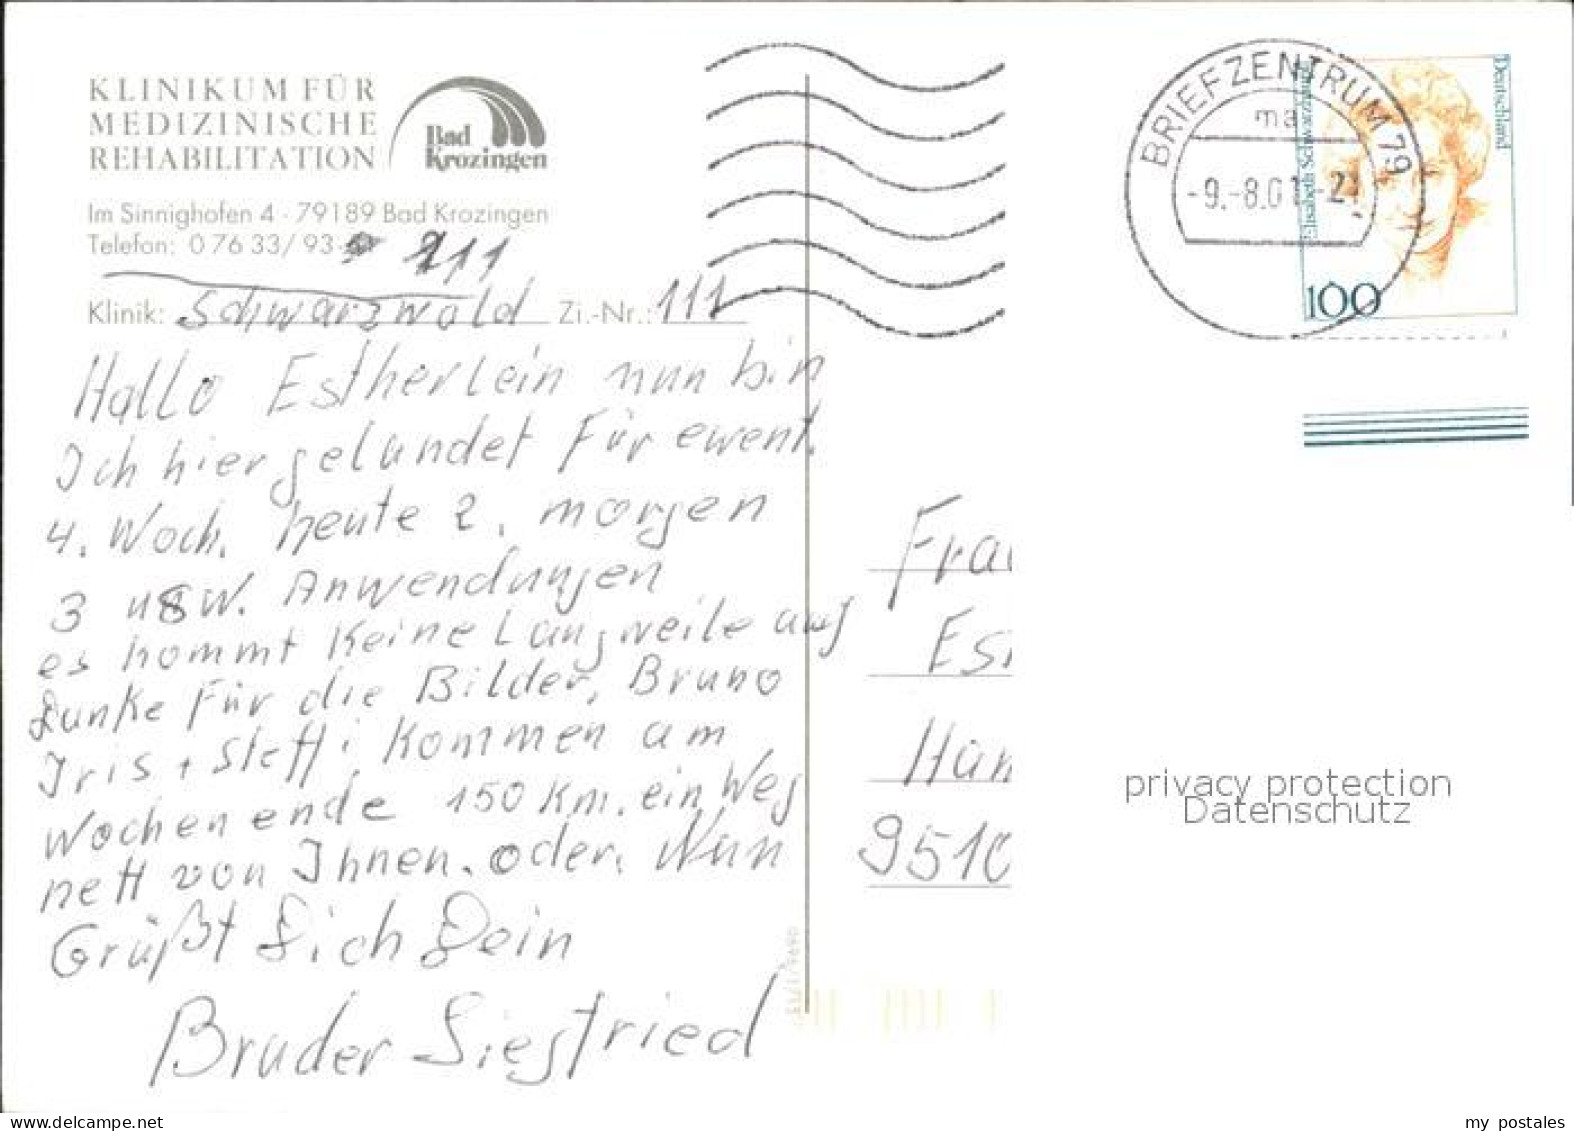 KLINIKUM FÜR
MEDIZINISCHE
REHABILITATION
Bad
Krozingen
Im Sinnighofen 4 - 79189 Bad Krozingen
Telefon: 0 76 33/ 93- 211
Klinik: Schwarzwald Zi.-Nr.: 111
Hallo Estherlein nun bin
Ich hier gelandet Für ewent.
4. Woch. heute 2. morgen
3 usw. Anwendungen
es kommt Keine Langweile auf
Danke Für die Bilder, Bruno
Iris + Steffi Kommen am
Wochenende 150 Km. ein Weg
nett von Ihnen. oder. Nun
Grüßt Dich Dein
Bruder Siegfried
BRIEFZENTRUM 79
ma
-9.-8.01-21
Deutschland
Elisabeth Schwarzhaupt
100
Frau
Es
Han
9510
privacy protection
Datenschutz
my postales
www.delcampe.net